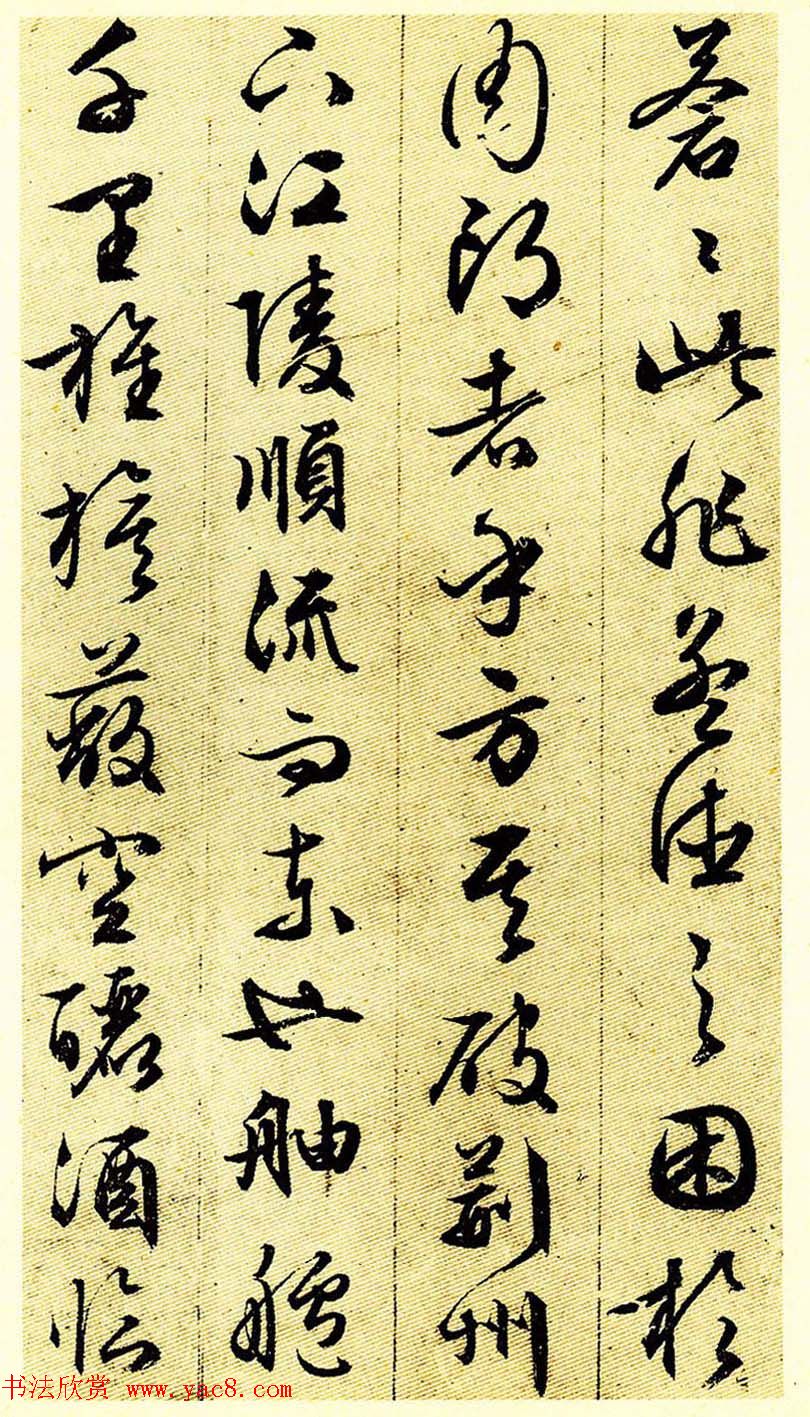 蒼々此非孟德之困於
周郎者乎方其破荊州
下江陵順流而東也舳艫
千里旌旗蔽空釃酒臨
书法欣赏 www.yac8.com